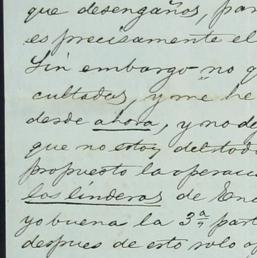 que desengaños, par
es precisamente el
Sin embargo no q
cultades, y me he
desde ahora, y no de
que no estoy del todo
propuesto la operaci
los linderos de Ene
yo buena la 3ª part
despues de esto solo